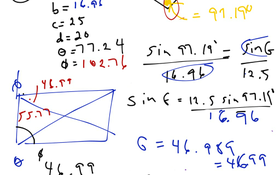 b = 16.96
c = 25
d = 20
θ = 77.24
φ = 102.76
= 97.19°
sin 97.19° = sin G
16.96 12.5
sin G = 12.5 sin 97.19°
16.96
G = 46.989
= 46.99
φ
46.99
55.77
θ φ
46.99